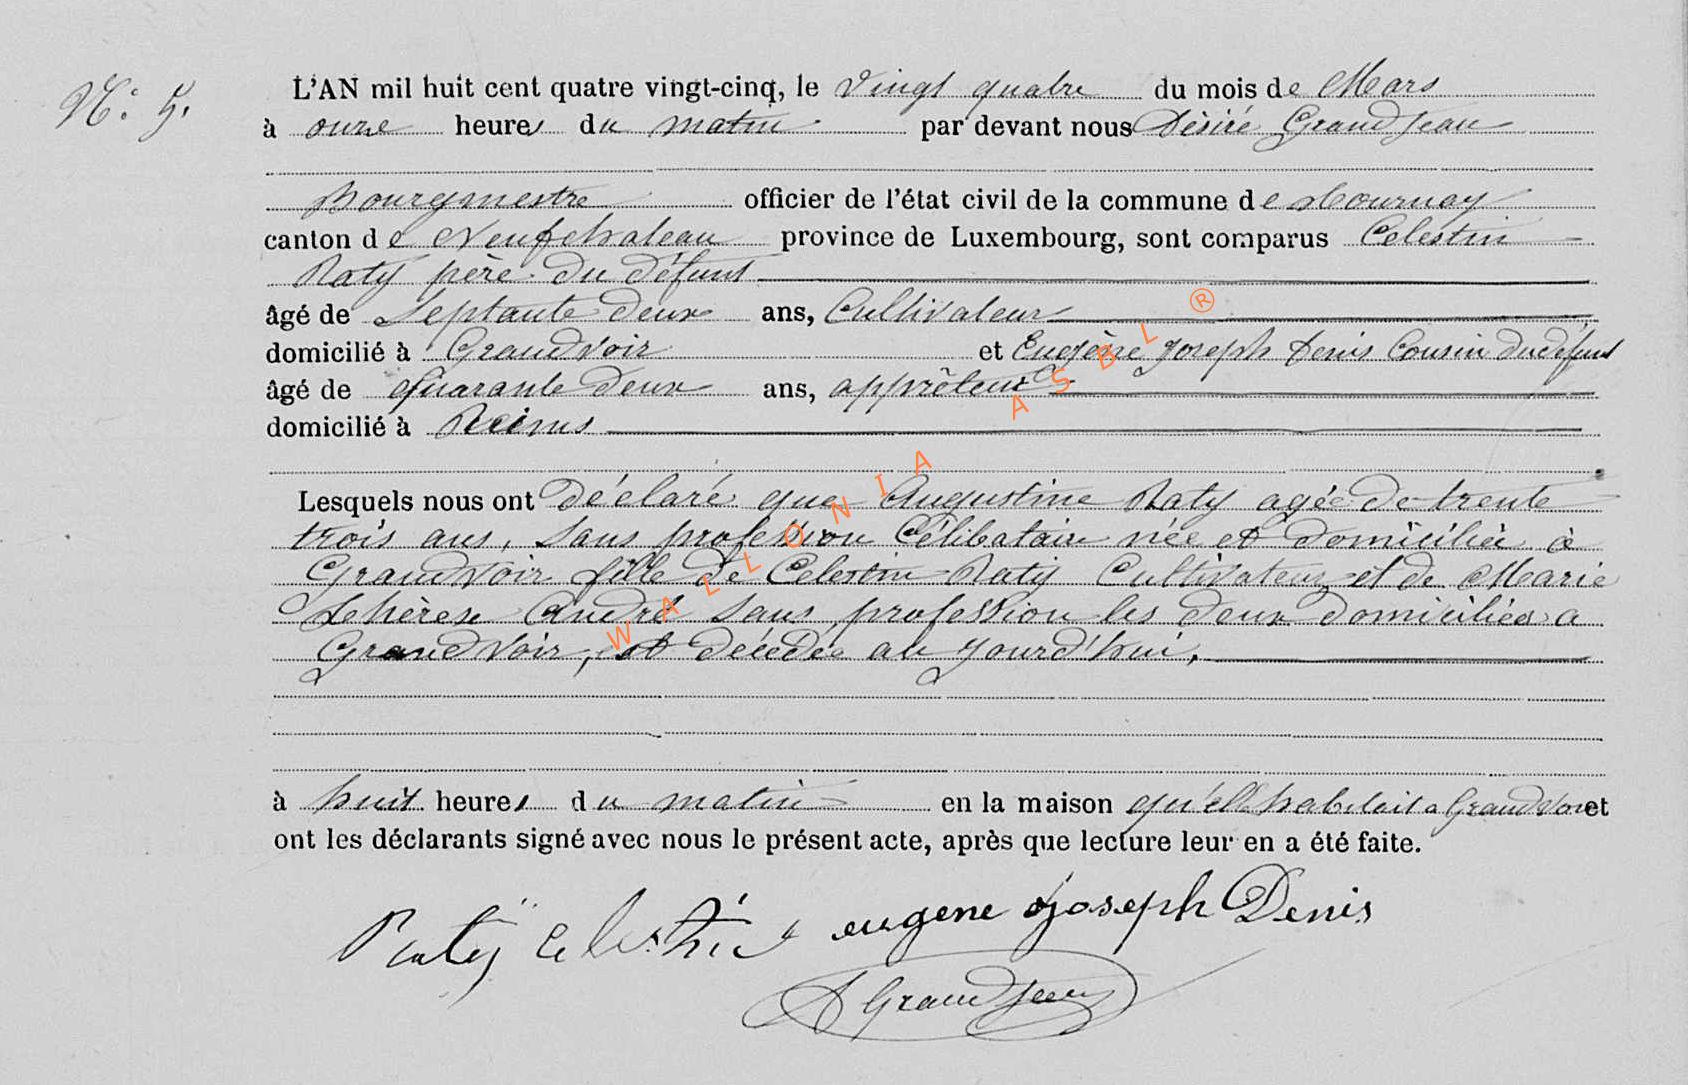 N.° 5.
L'AN mil huit cent quatre vingt-cinq, le vingt quatre du mois de Mars
à onze heures du matin par devant nous Désiré Grandjean
Bourgmestre officier de l'état civil de la commune de Tournay
canton de Neufchateau province de Luxembourg, sont comparus Celestin
Raty père du défunt
âgé de Septante deux ans, Cultivateur
domicilié à Grandvoir et Eugène Joseph Denis Cousin du défunt
âgé de quarante deux ans, apprêteur
domicilié à Reims
Lesquels nous ont déclaré que Augustine Raty agée de trente
trois ans, sans profession Célibataire née et domiciliée à
Grandvoir fille de Celestin Raty Cultivateur et de Marie
Thérèse André sans profession les deux domiciliés a
Grandvoir, est décédée au jourd'hui,
à huit heures du matin en la maison qu'elle habitait a Grandvoir et
ont les déclarants signé avec nous le présent acte, après que lecture leur en a été faite.
Ratÿ Celestin eugene Joseph Denis
D Grandjean
WALLONIA ASBL ®